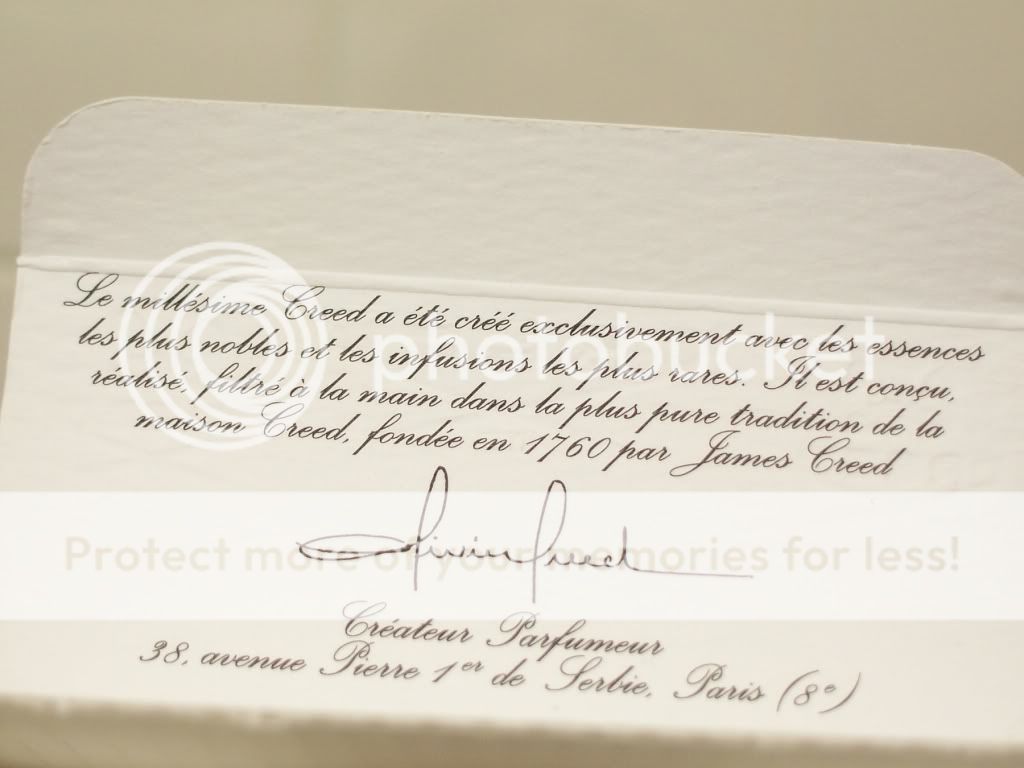 Le millésime Creed a été créé exclusivement avec les essences
les plus nobles et les infusions les plus rares. Il est conçu,
réalisé, filtré à la main dans la plus pure tradition de la
maison Creed, fondée en 1760 par James Creed
photobucket
Olivier Creed
Protect more of your memories for less!
Créateur Parfumeur
38, avenue Pierre 1er de Serbie, Paris (8e)